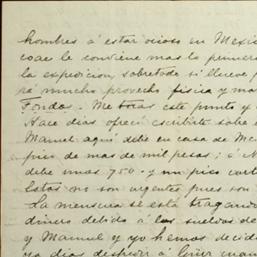 hombres á estar ocioso en Mexic
coac le conviene mas lo primero
la expedicion, sobretodo si llueve p
rá mucho provecho fisica y mo
Fondos. Me toras este punto y
Hace dias ofrecí escribirte sobre
Manuel aquí debe en casa de Me
pico de mas de mil pesos; ó N
debe unos 750. y un pico cort
Estas no son urgentes pues son
La mensura se está tragando
dinero debido á los sueldos de
y Manuel y yo hemos decid
ya dias despedir á